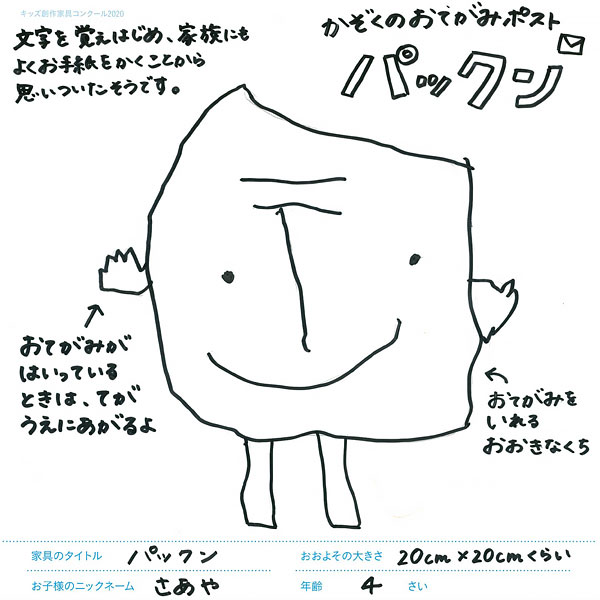 キッズ創作家具コンクール2020
文字を覚えはじめ、家族にも
よくお手紙をかくことから
思いついたそうです。
かぞくのおてがみポスト
パックン
おてがみが
はいっている
ときは、てが
うえにあがるよ
おてがみを
いれる
おおきなくち
家具のタイトル パックン
おおよその大きさ 20cm×20cmくらい
お子様のニックネーム さあや
年齢 4 さい